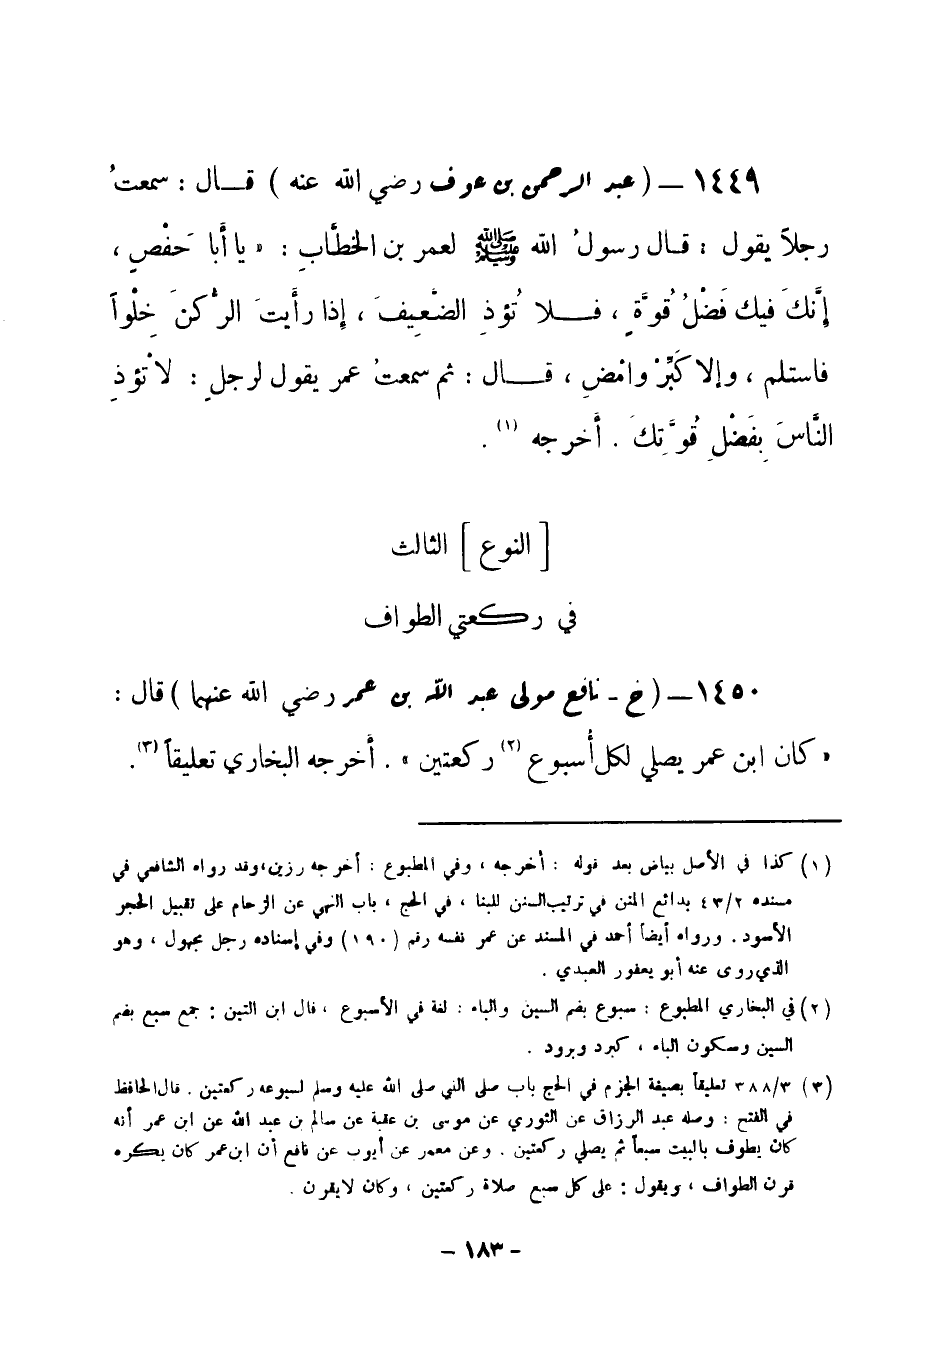 ١٤٤٩ – ( عبد الرحمن بن عوف رضي الله عنه ) قال : سمعتُ
رجلاً يقول : قال رسولُ الله ﷺ لعمر بن الخطَّابِ : « يا أبا حَفْصٍ ،
إنَّكَ فيك فَضْلُ قُوَّةٍ ، فلا تُؤذِ الضَّعِيفَ ، إذا رأيتَ الرُّكنَ خِلْواً
فاستلم ، وإلا كَبِّرْ وامْضِ ، قال : ثم سمعتُ عمر يقول لرجلٍ : لا تُؤذِ
النَّاسَ بِفَضْلِ قُوَّتِكَ . أخرجه (١) .
[ النوع ] الثالث
في ركعتي الطواف
١٤٥٠ – ( خ - نافع مولى عبد الله بن عمر رضي الله عنهما ) قال :
« كان ابن عمر يصلي لكل أُسبوع (٢) ركعتين » . أخرجه البخاري تعليقاً (٣) .
(١) كذا في الأصل بياض بعد قوله : أخرجه ، وفي المطبوع : أخرجه رزين ، وقد رواه الشافعي في
مسنده ٤٣/٢ بدائع المنن في ترتيب السنن للبنا ، في الحج ، باب النهي عن الزحام على تقبيل الحجر
الأسود . ورواه أيضاً أحمد في المسند عن عمر نفسه رقم (١٩٠) وفي إسناده رجل مجهول ، وهو
الذي روى عنه أبو يعفور العبدي .
(٢) في البخاري المطبوع : سبوع بضم السين والباء : لغة في الأسبوع ، قال ابن التين : جمع سبع بضم
السين وسكون الباء ، كبرد وبرود .
(٣) ٣٨٨/٣ تعليقاً بصيغة الجزم في الحج باب صلى النبي صلى الله عليه وسلم لسبوعه ركعتين . قال الحافظ
في الفتح : وصله عبد الرزاق عن الثوري عن موسى بن عقبة عن سالم بن عبد الله عن ابن عمر أنه
كان يطوف بالبيت سبعاً ثم يصلي ركعتين . وعن معمر عن أيوب عن نافع أن ابن عمر كان يكره
قرن الطواف ، ويقول : على كل سبع صلاة ركعتين ، وكان لا يقرن .
– ١٨٣ –